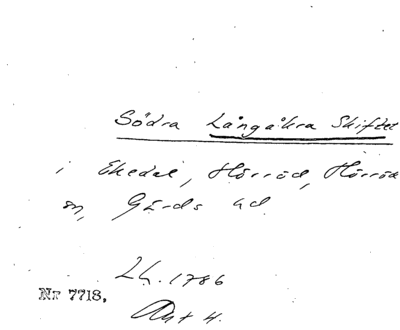 Södra Långåkra Skiftet
i Ekedal, Hörröd, Hörröds
sn, Gärds hd.
Lh. 1786
Nr 7718.
Akt 4.